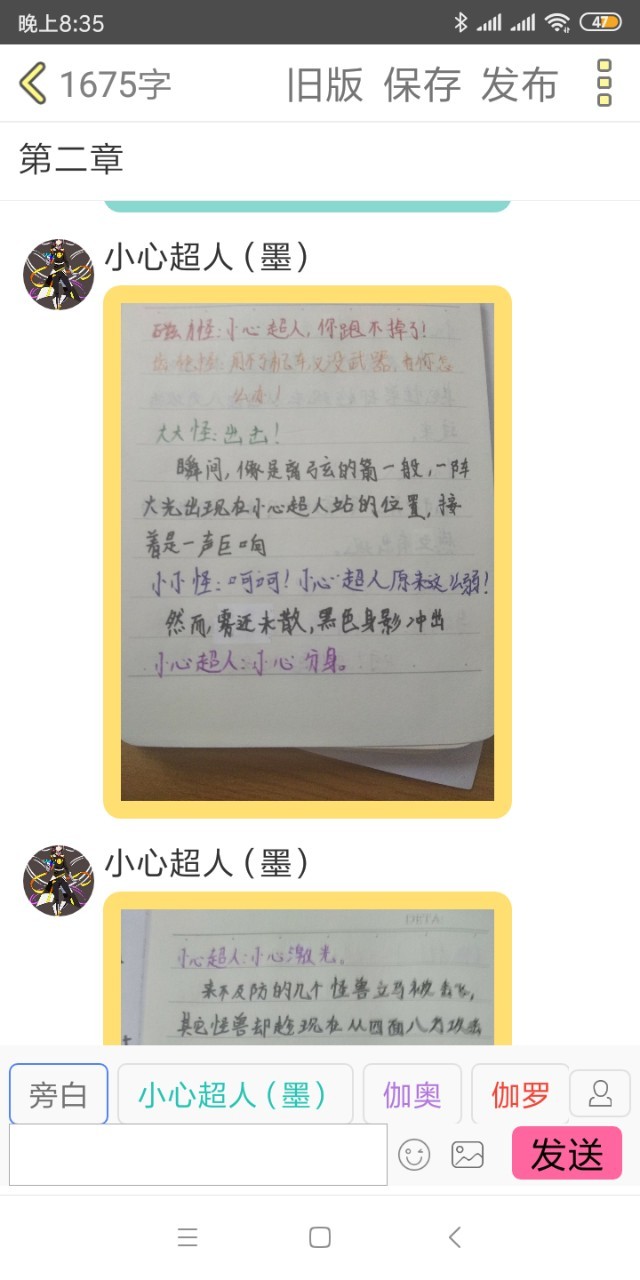 晚上8:35
47
1675字
旧版 保存 发布
第二章
小心超人（墨）
磁力怪:小心超人,你跑不掉了!
用不了机车又没武器,看你怎
么办!
大大怪:出击!
瞬间,像是离弦的箭一般,一阵
大光出现在小心超人站的位置,接
着是一声巨响
小小怪:呵呵!小心超人原来这么弱!
然而,雾还未散,黑色身影冲出
小心超人:小心分身。
小心超人（墨）
DETA
小心超人:小心激光。
来不及防的几个怪兽立马被击飞,
其它怪兽却趁现在从四面八方攻击
旁白
小心超人（墨）
伽奥
伽罗
发送